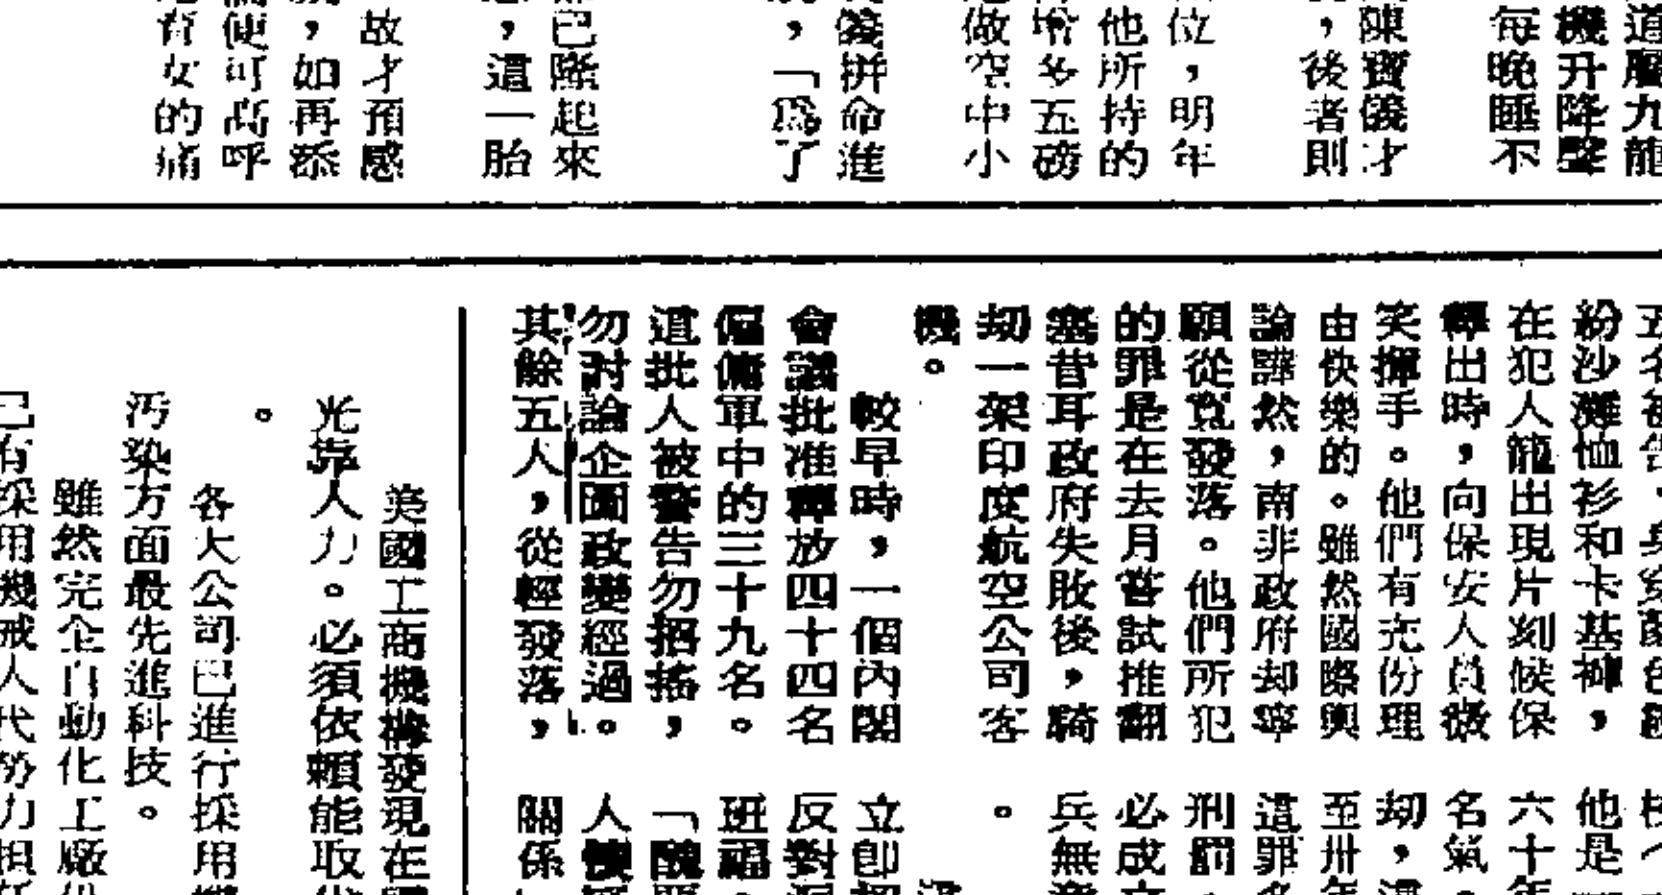 道
九龍
機升降聲
每晚睡不
陳寶儀才
，後者則
位，明年
他所持的
增多五磅
做空中小
儀拼命進
，「為了
已隆起來
，這一胎
故才預感
，如再添
便可高呼
育女的痛
紛沙灘恤衫和卡基褲，
在犯人籠出現片刻候保
釋出時，向保安人員微
笑揮手。他們有充份理
由快樂的。雖然國際輿
論譁然，南非政府却寧
願從寬發落。他們所犯
的罪是在去月嘗試推翻
塞昔耳政府失敗後，騎
刼一架印度航空公司客
機。
較早時，一個內閣
會議批准釋放四十四名
僱傭軍中的三十九名。
道批人被警告勿招搖，
勿討論企圖政變經過。
其餘五人，從輕發落，
他是
六十年
名氣
刼，
至卅年
這罪
刑罰
必成
兵無
。
立即
反對
班
「醜
人
關係
美國工商機構發現在
光靠人力。必須依賴能取代
。
各大公司已進行採用
污染方面最先進科技。
雖然完全自動化工廠
已有採用機械人代勞力